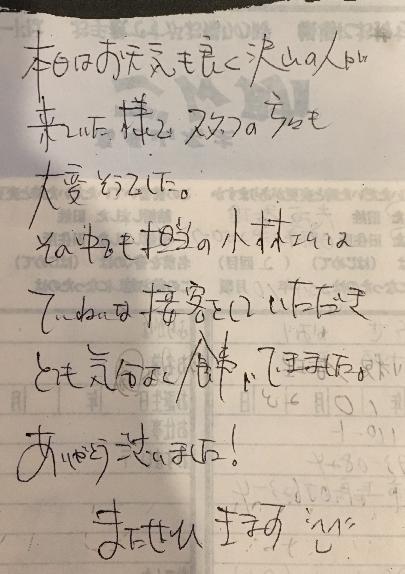 本日はお天気も良く沢山の人が
来ていた様で スタッフの方々も
大変そうでした。
その中でも担当の小林さんは
ていねいな接客をしていただき
とても気分よく食事ができました。
ありがとう御座いました！
またぜひ きます